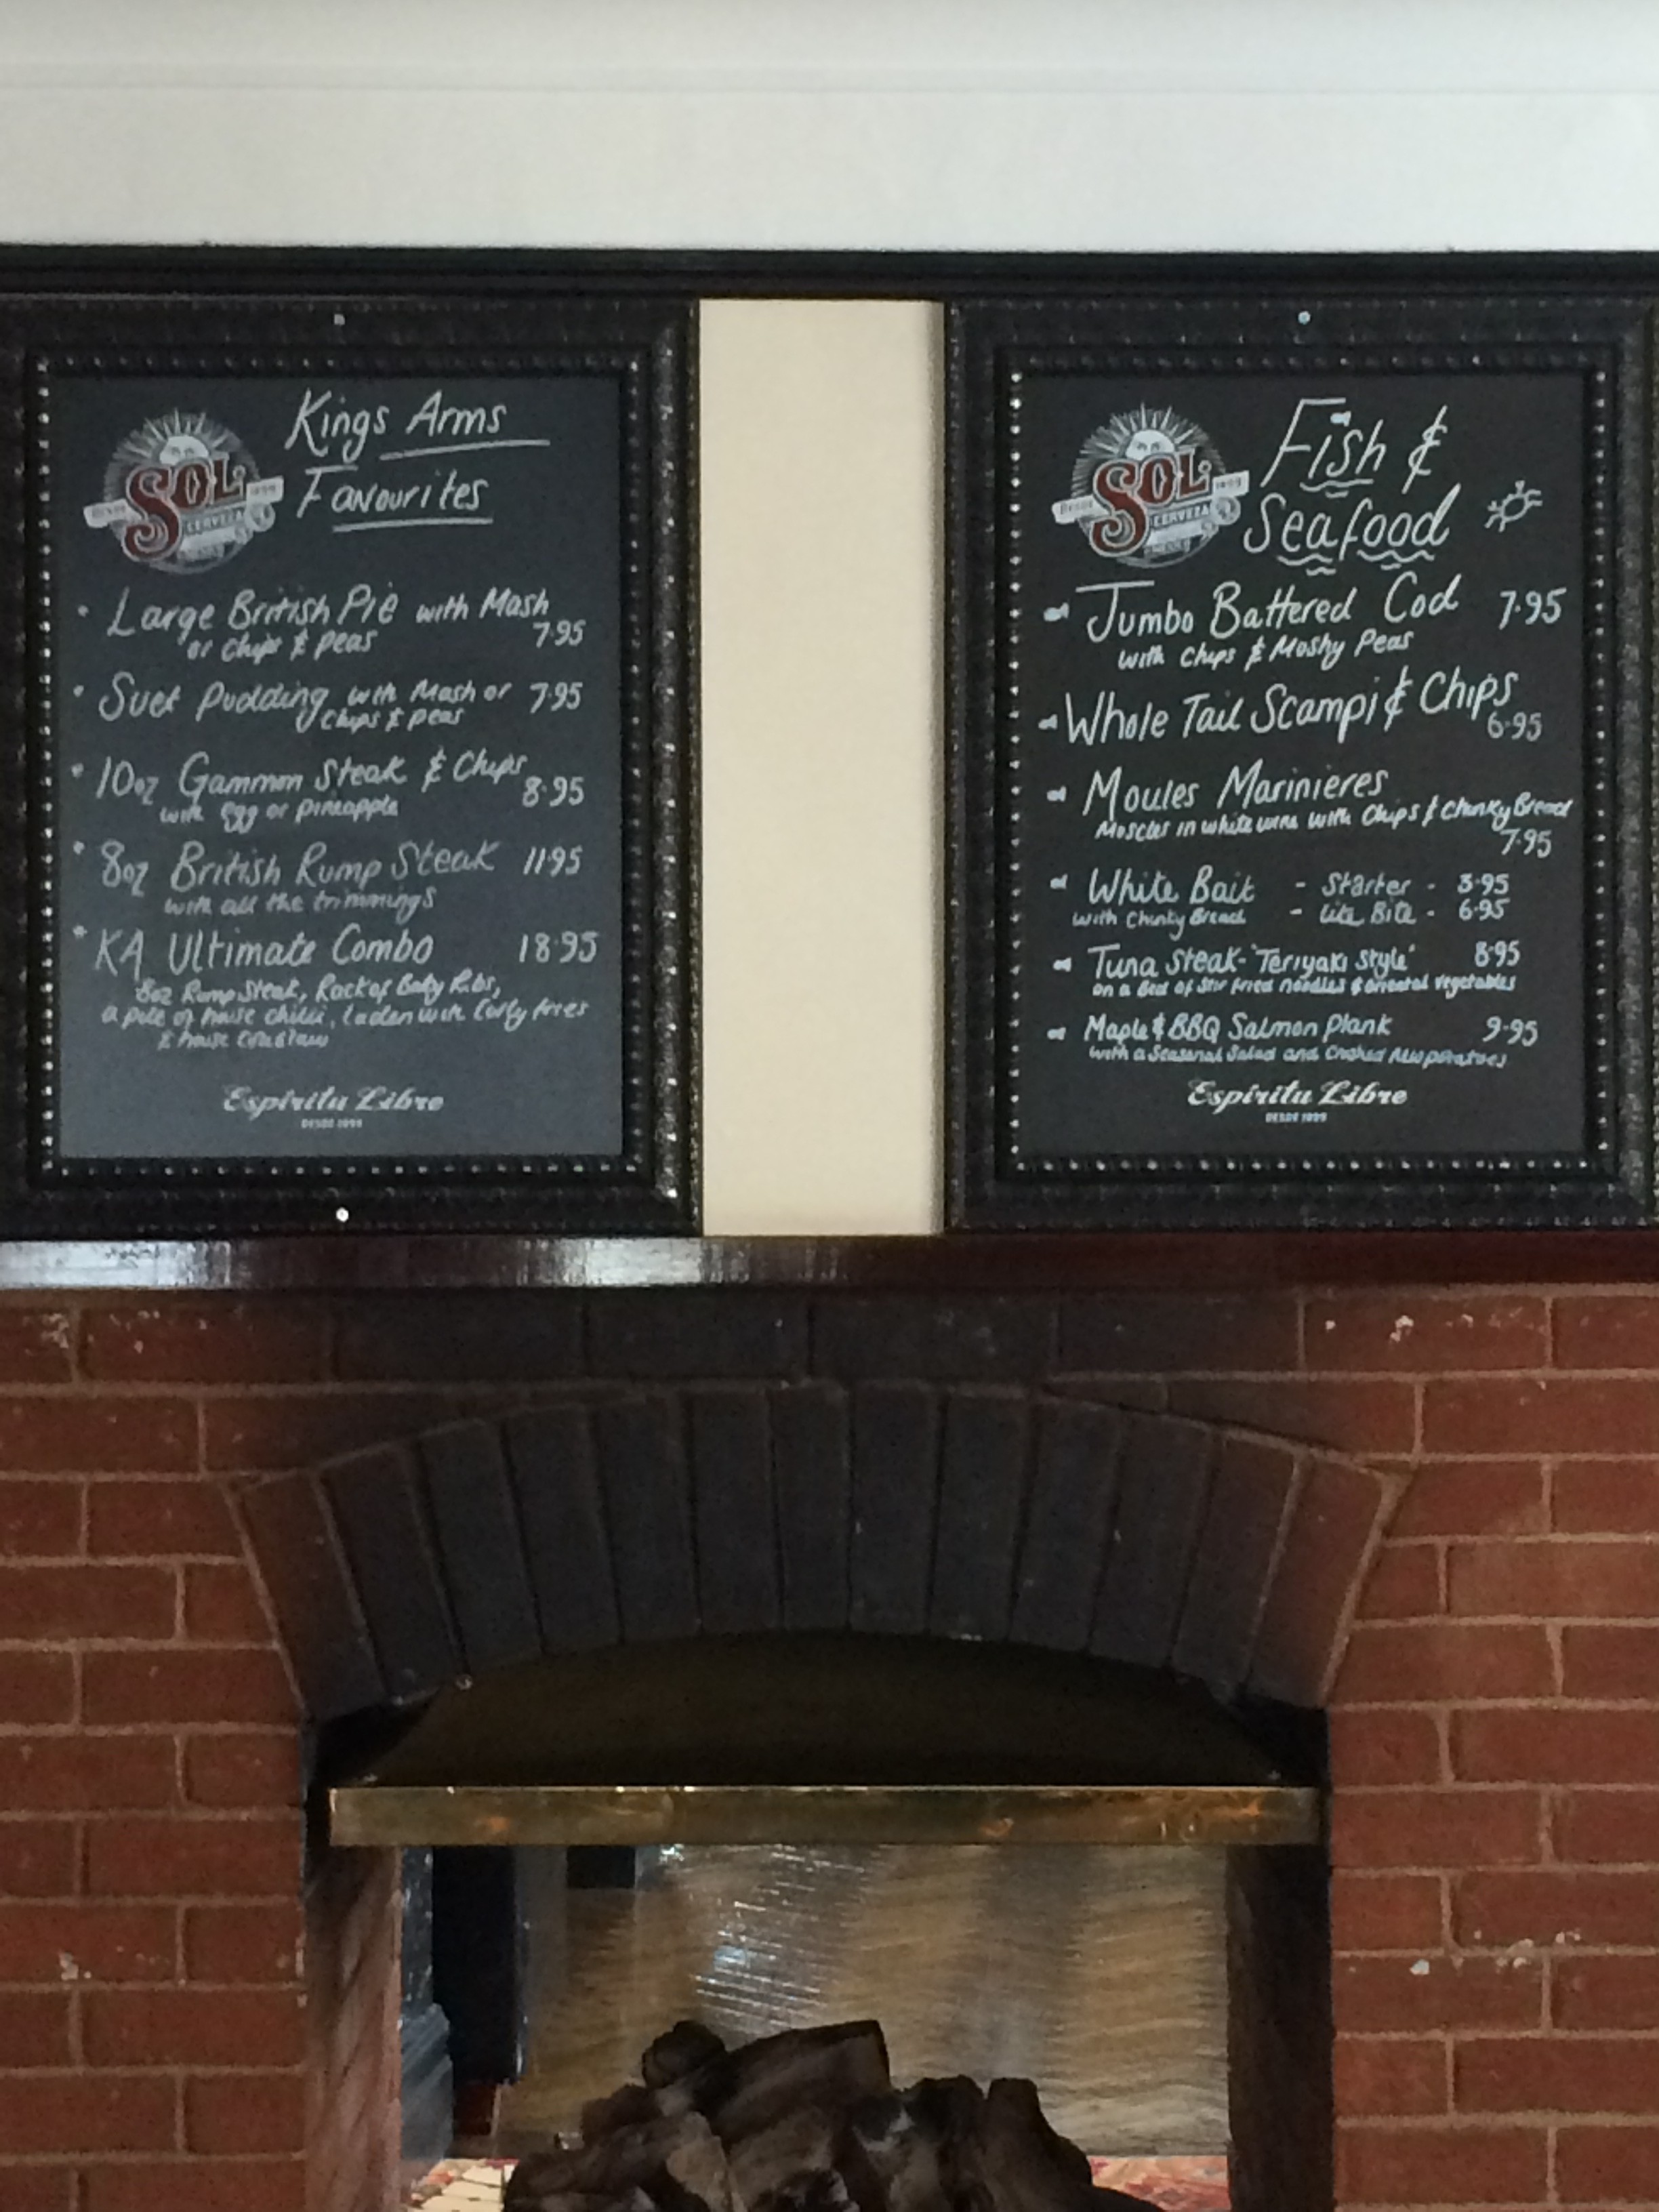 Kings Arms
Favourites
DESDE 1899
SOL
CERVEZA
Large British Pie with Mash
or Chips & Peas 7.95
Suet Pudding with Mash or 7.95
Chips & Peas
10oz Gammon Steak & Chips
with Egg or Pineapple 8.95
8oz British Rump Steak 11.95
with all the trimmings
KA Ultimate Combo 18.95
8oz Rump Steak, Rack of Baby Ribs,
a pile of house chilli, laden with Curly fries
& house Coleslaw
Espíritu Libre
DESDE 1899
Fish &
Seafood
DESDE 1899
SOL
CERVEZA
Jumbo Battered Cod 7.95
with Chips & Moshy Peas
Whole Tail Scampi & Chips
6.95
Moules Marinieres
Moscles in white wine with Chips & Chunky Bread
7.95
White Bait - Starter - 3.95
with Chunky Bread - Lite Bite - 6.95
Tuna Steak - 'Teriyaki Style' 8.95
on a Bed of Stir fried noodles & oriental vegetables
Maple & BBQ Salmon Plank 9.95
with a Seasonal Salad and Crushed New potatoes
Espíritu Libre
DESDE 1899